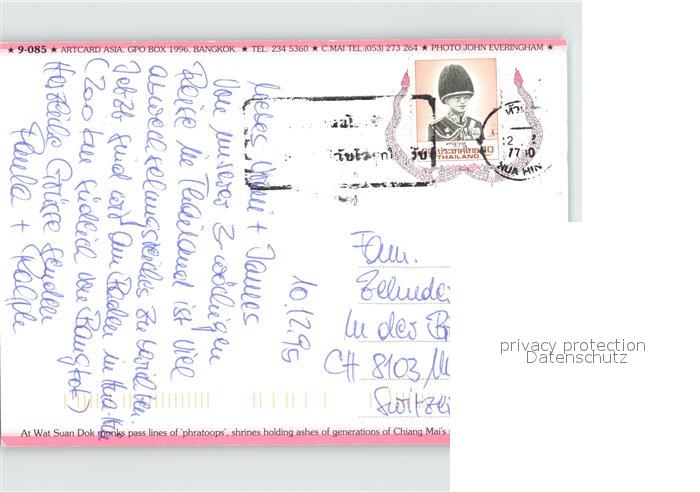 ★ 9-085 ★ ARTCARD ASIA, GPO BOX 1996, BANGKOK. ★ TEL: 234 5360 ★ C.MAI TEL.(053) 273 264 ★ PHOTO:JOHN EVERINGHAM ★
ประเทศไทย
THAILAND
77110
HUA HIN
10.12.95
Liebes + James
Von unserer 3-wöchigen
Reise in Thailand ist viel
abwechslungsreiches zu berichten.
Jetzt sind wir am Baden in Hua-Hin
(200 km südlich von Bangkok)
Herzliche Grüsse senden
Paula + Ralph
Fam.
Zehnde
In der B
CH 8103
Switze
privacy protection
Datenschutz
At Wat Suan Dok monks pass lines of 'phratoops', shrines holding ashes of generations of Chiang Mai's